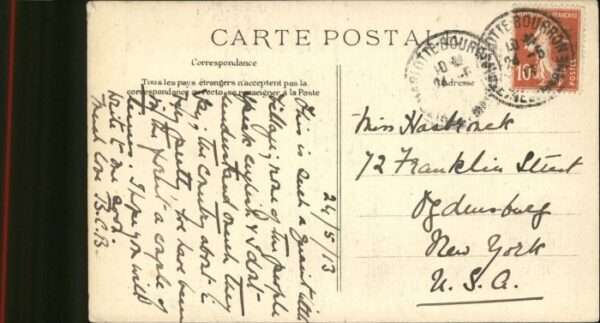 CARTE POSTALE
Correspondance
Tous les pays étrangers n'acceptent pas la
correspondance au recto. se renseigner à la Poste
Adresse
MARLOTTE-BOURRON
24 -5
MARLOTTE-BOURRON
24 -5
10c
POSTES
24/5/13
This is such a quaint little
village; none of the people
speak english & I don't
understand much they
say; the country about is
very pretty. We have been
in the forest a couple of
times. I hope you will
write to me soon.
Much love B.C.B-
Miss Hasbrouck
72 Franklin Street
Ogdensburg
New York
U.S.A.